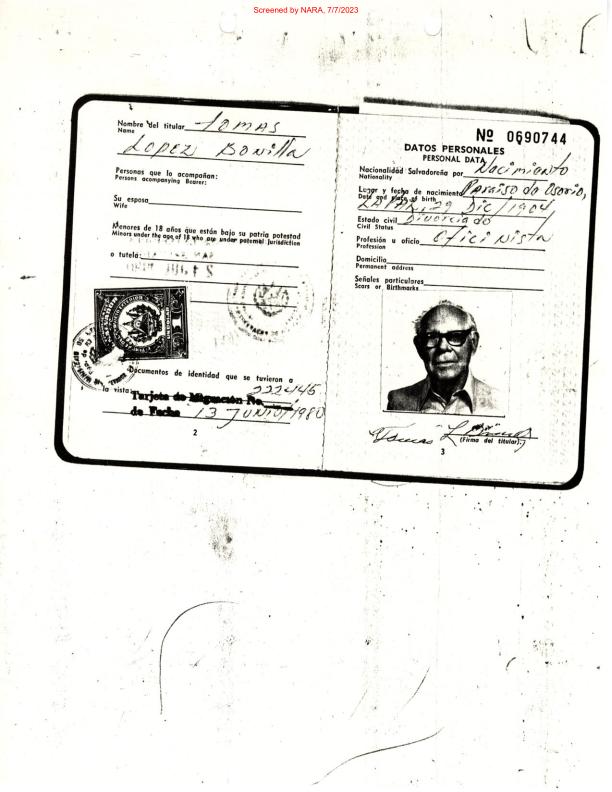 Screened by NARA, 7/7/2023
Nombre del titular Tomas
Name
Lopez Bonilla
Personas que lo acompañan:
Persons acompanying Bearer:
Su esposa
Wife
Menores de 18 años que están bajo su patria potestad
Minors under the age of 18 who are under paternal Jurisdiction
o tutela:
Documentos de identidad que se tuvieron a
la vista: 222445
Tarjeta de Migración No.
de Fecha 13 Junio/1980
2
Nº 0690744
DATOS PERSONALES
PERSONAL DATA
Nacionalidad Salvadoreña por Nacimiento
Nationality
Lugar y fecha de nacimiento Paraiso de Osorio,
Date and place of birth
La Paz, 29 Dic/1904
Estado civil Divorciado
Civil Status
Profesión u oficio Oficinista
Profession
Domicilio
Permanent address
Señales particulares
Scars or Birthmarks
Tomas L
(Firma del titular)
3